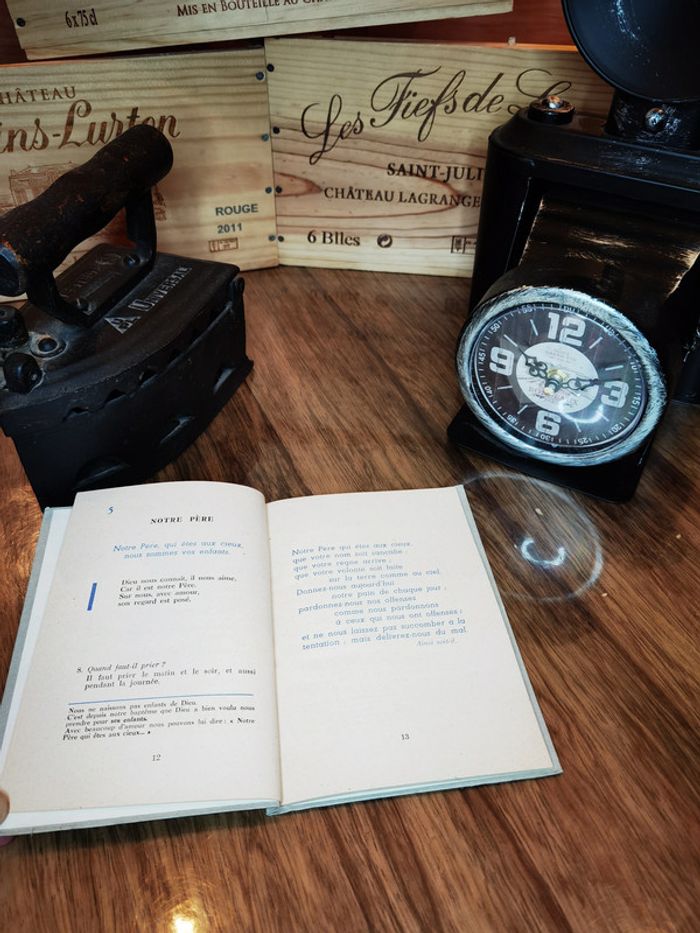 6x75cl
MIS EN BOUTEILLE AU
HÂTEAU
ins-Lurton
ROUGE
2011
Les Fiefs de
SAINT-JULI
CHÂTEAU LAGRANGE
6 Blles
12
9
3
6
5
NOTRE PÈRE
Notre Père, qui êtes aux cieux,
nous sommes vos enfants.
Dieu nous connaît, il nous aime,
Car il est notre Père.
Sur nous, avec amour,
son regard est posé.
8. Quand faut-il prier ?
Il faut prier le matin et le soir, et aussi
pendant la journée.
Nous ne naissons pas enfants de Dieu.
C'est depuis notre baptême que Dieu a bien voulu nous
prendre pour ses enfants.
Avec beaucoup d'amour nous pouvons lui dire : « Notre
Père qui êtes aux cieux... »
12
Notre Père qui êtes aux cieux,
que votre nom soit sanctifié ;
que votre règne arrive ;
que votre volonté soit faite
sur la terre comme au ciel.
Donnez-nous aujourd'hui
notre pain de chaque jour ;
pardonnez-nous nos offenses
comme nous pardonnons
à ceux qui nous ont offensés ;
et ne nous laissez pas succomber à la
tentation ; mais délivrez-nous du mal.
Ainsi soit-il.
13